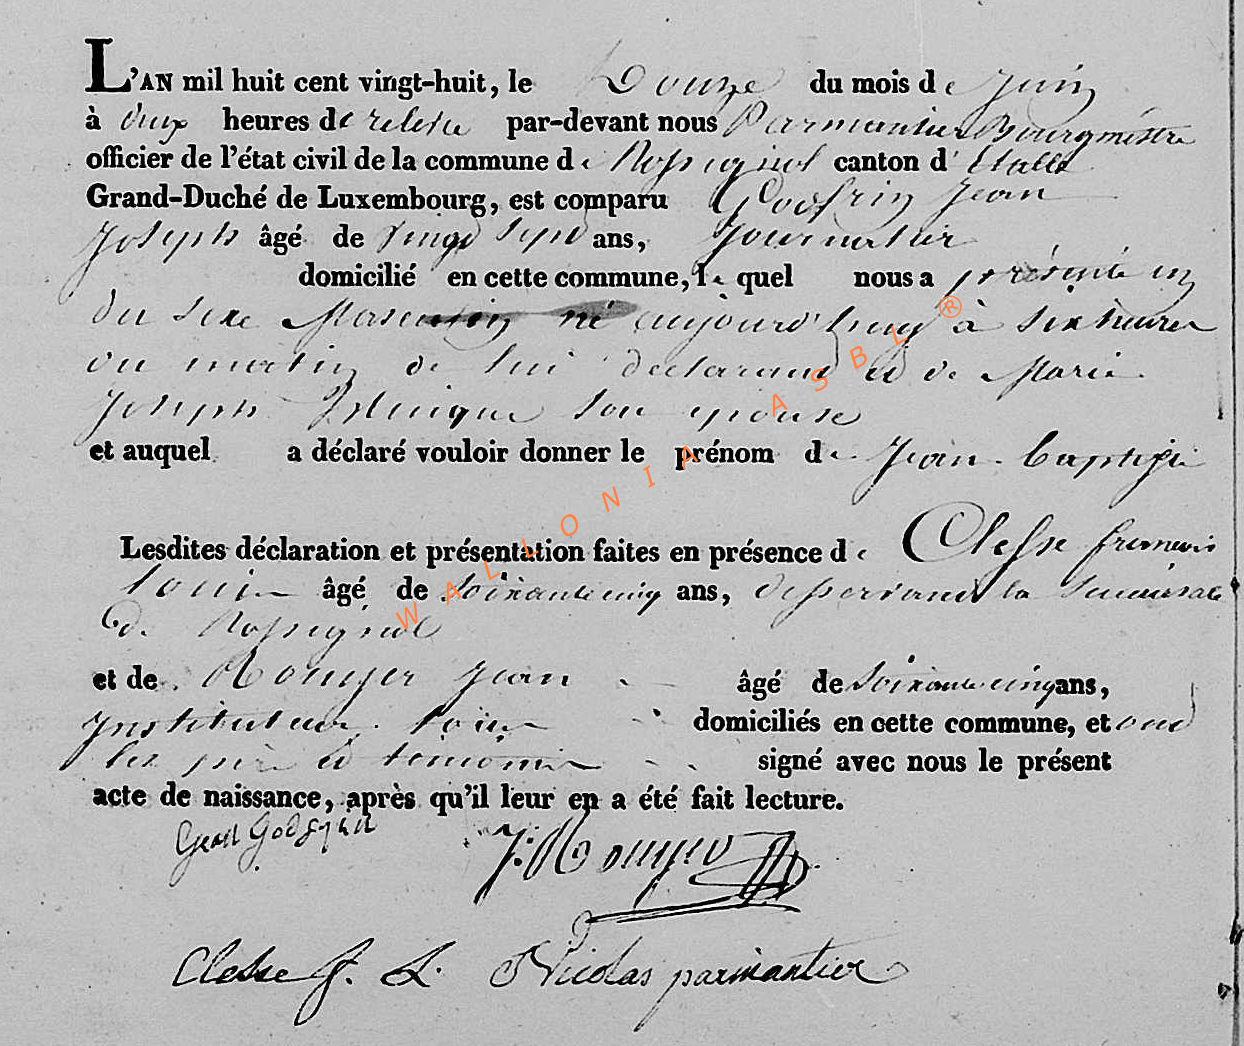 L'AN mil huit cent vingt-huit, le Douze du mois de Juin
à deux heures de relevée par-devant nous Parmantier Bourgmestre
officier de l'état civil de la commune de Rossignol canton d'Etalle
Grand-Duché de Luxembourg, est comparu Godfrin Jean
Joseph âgé de vingt sept ans, Journalier
domicilié en cette commune, le quel nous a présenté un
du sexe Masculin né aujourd'huy à six heures
du matin de lui déclarant et de Marie
Joseph son epouse
et auquel a déclaré vouloir donner le prénom de Jean Baptiste
Lesdites déclaration et présentation faites en présence de Clesse francois
Louis âgé de soixante cinq ans, desservant la succursale
de Rossignol
et de Ronger Jean âgé de soixante cinq ans,
Instituteur domiciliés en cette commune, et ont
les père et témoins signé avec nous le présent
acte de naissance, après qu'il leur en a été fait lecture.
Jean Godfrin J: Ronger
Clesse f. L. Nicolas parmantier
WALLONIA ASBL ®